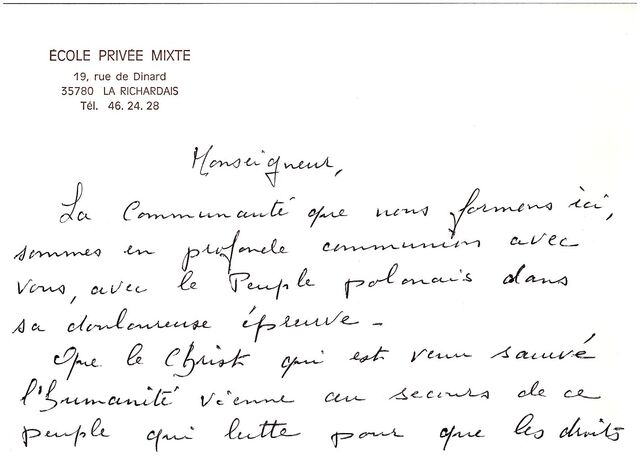 ÉCOLE PRIVÉE MIXTE
19, rue de Dinard
35780 LA RICHARDAIS
Tél. 46.24.28
Monseigneur,
La Communauté que nous formons ici,
sommes en profonde communion avec
vous, avec le Peuple polonais dans
sa douloureuse épreuve -
Que le Christ qui est venu sauvé
l'Humanité vienne au secours de ce
peuple qui lutte pour que les droits